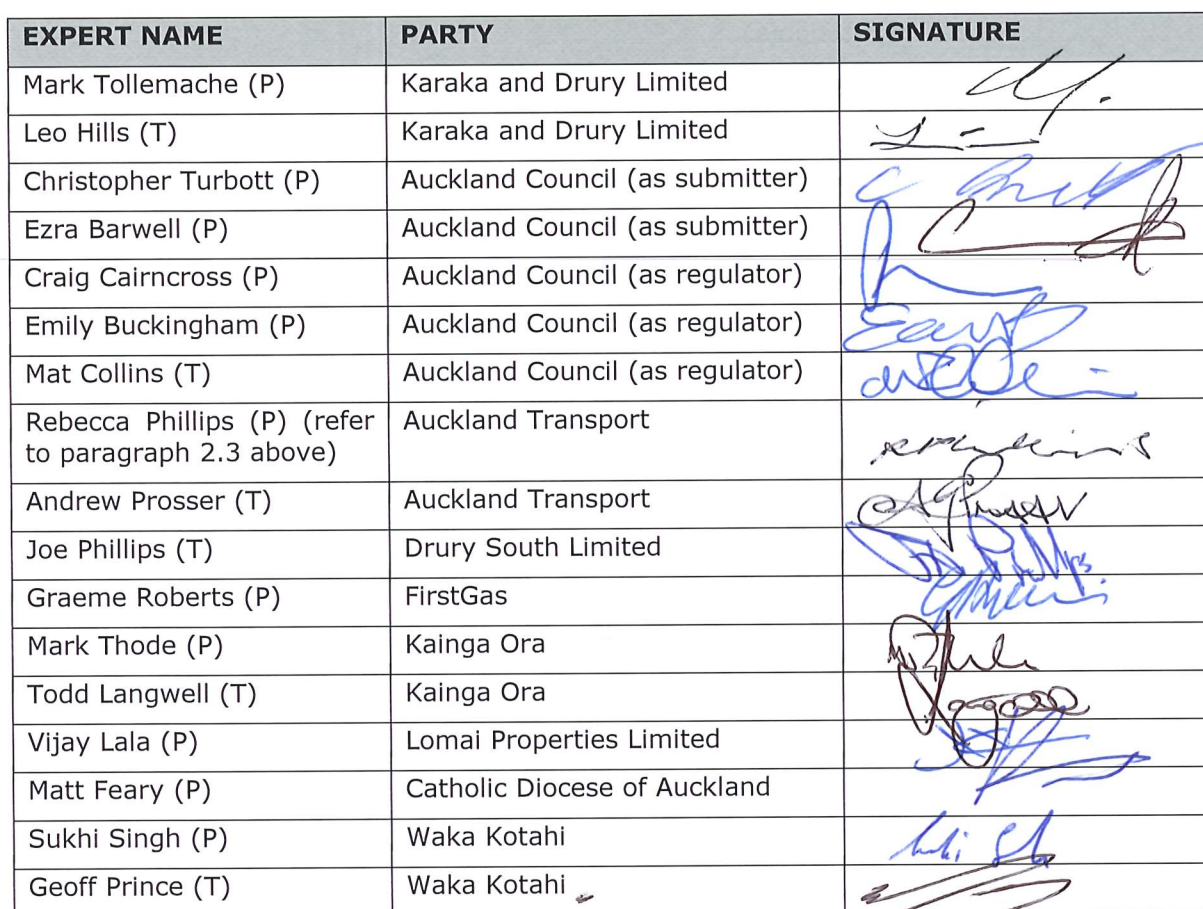 EXPERT NAME PARTY SIGNATURE
Mark Tollemache (P) Karaka and Drury Limited
Leo Hills (T) Karaka and Drury Limited
Christopher Turbott (P) Auckland Council (as submitter)
Ezra Barwell (P) Auckland Council (as submitter)
Craig Cairncross (P) Auckland Council (as regulator)
Emily Buckingham (P) Auckland Council (as regulator)
Mat Collins (T) Auckland Council (as regulator)
Rebecca Phillips (P) (refer Auckland Transport
to paragraph 2.3 above)
Andrew Prosser (T) Auckland Transport
Joe Phillips (T) Drury South Limited
Graeme Roberts (P) FirstGas
Mark Thode (P) Kainga Ora
Todd Langwell (T) Kainga Ora
Vijay Lala (P) Lomai Properties Limited
Matt Feary (P) Catholic Diocese of Auckland
Sukhi Singh (P) Waka Kotahi
Geoff Prince (T) Waka Kotahi